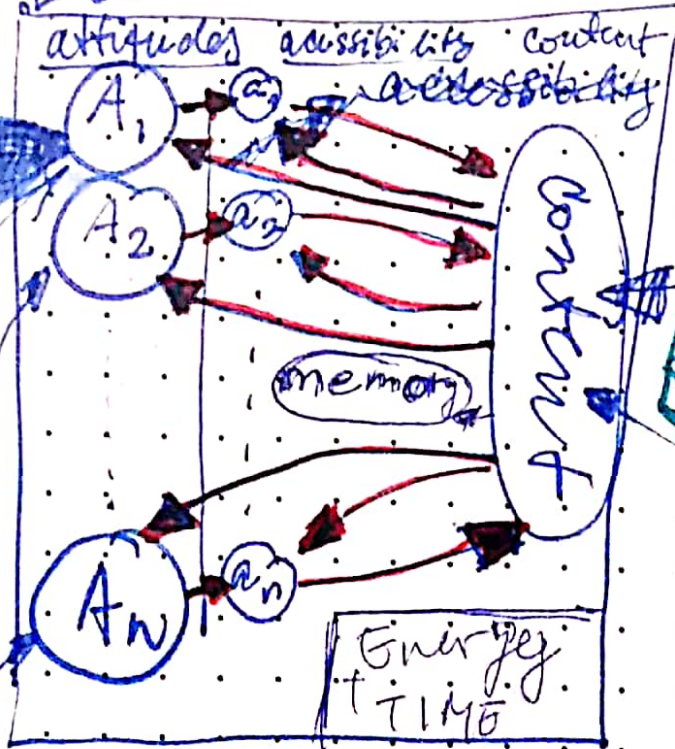 attitudes acissibility content
accossibility
A1 a1
A2 a2
content
memory
An an
Energy
+ TIME